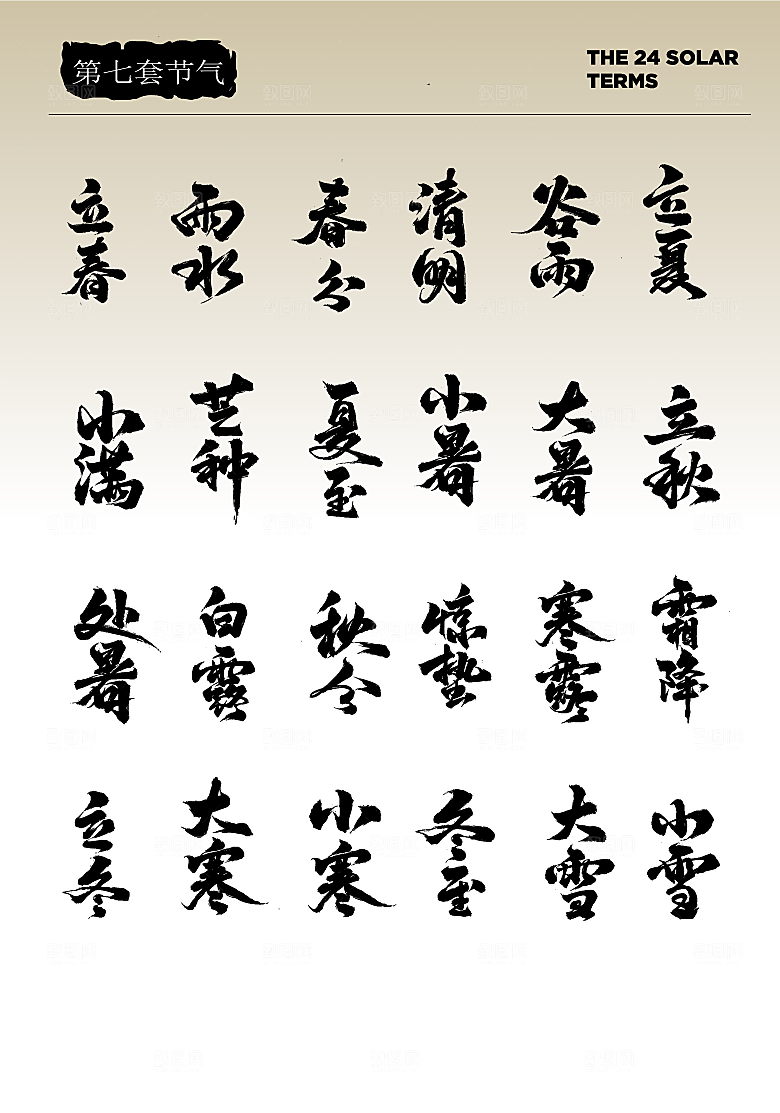 第七套节气
THE 24 SOLAR
TERMS
立春
雨水
春分
清明
谷雨
立夏
小满
芒种
夏至
小暑
大暑
立秋
处暑
白露
秋分
惊蛰
寒露
霜降
立冬
大寒
小寒
冬至
大雪
小雪